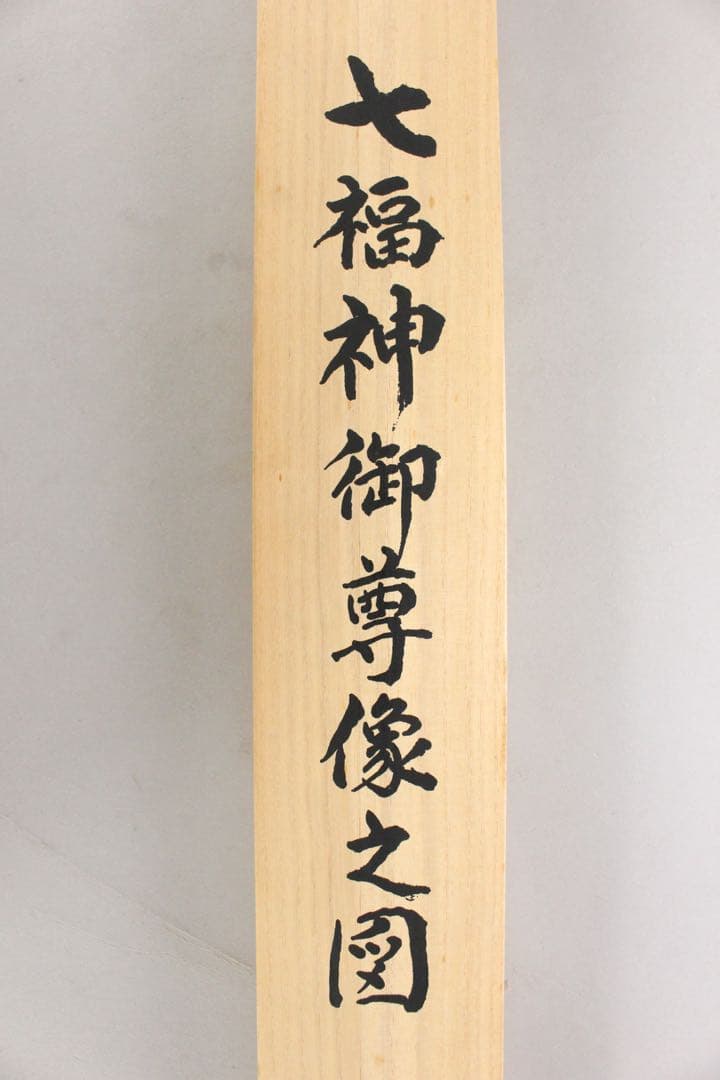 七福神御尊像之図